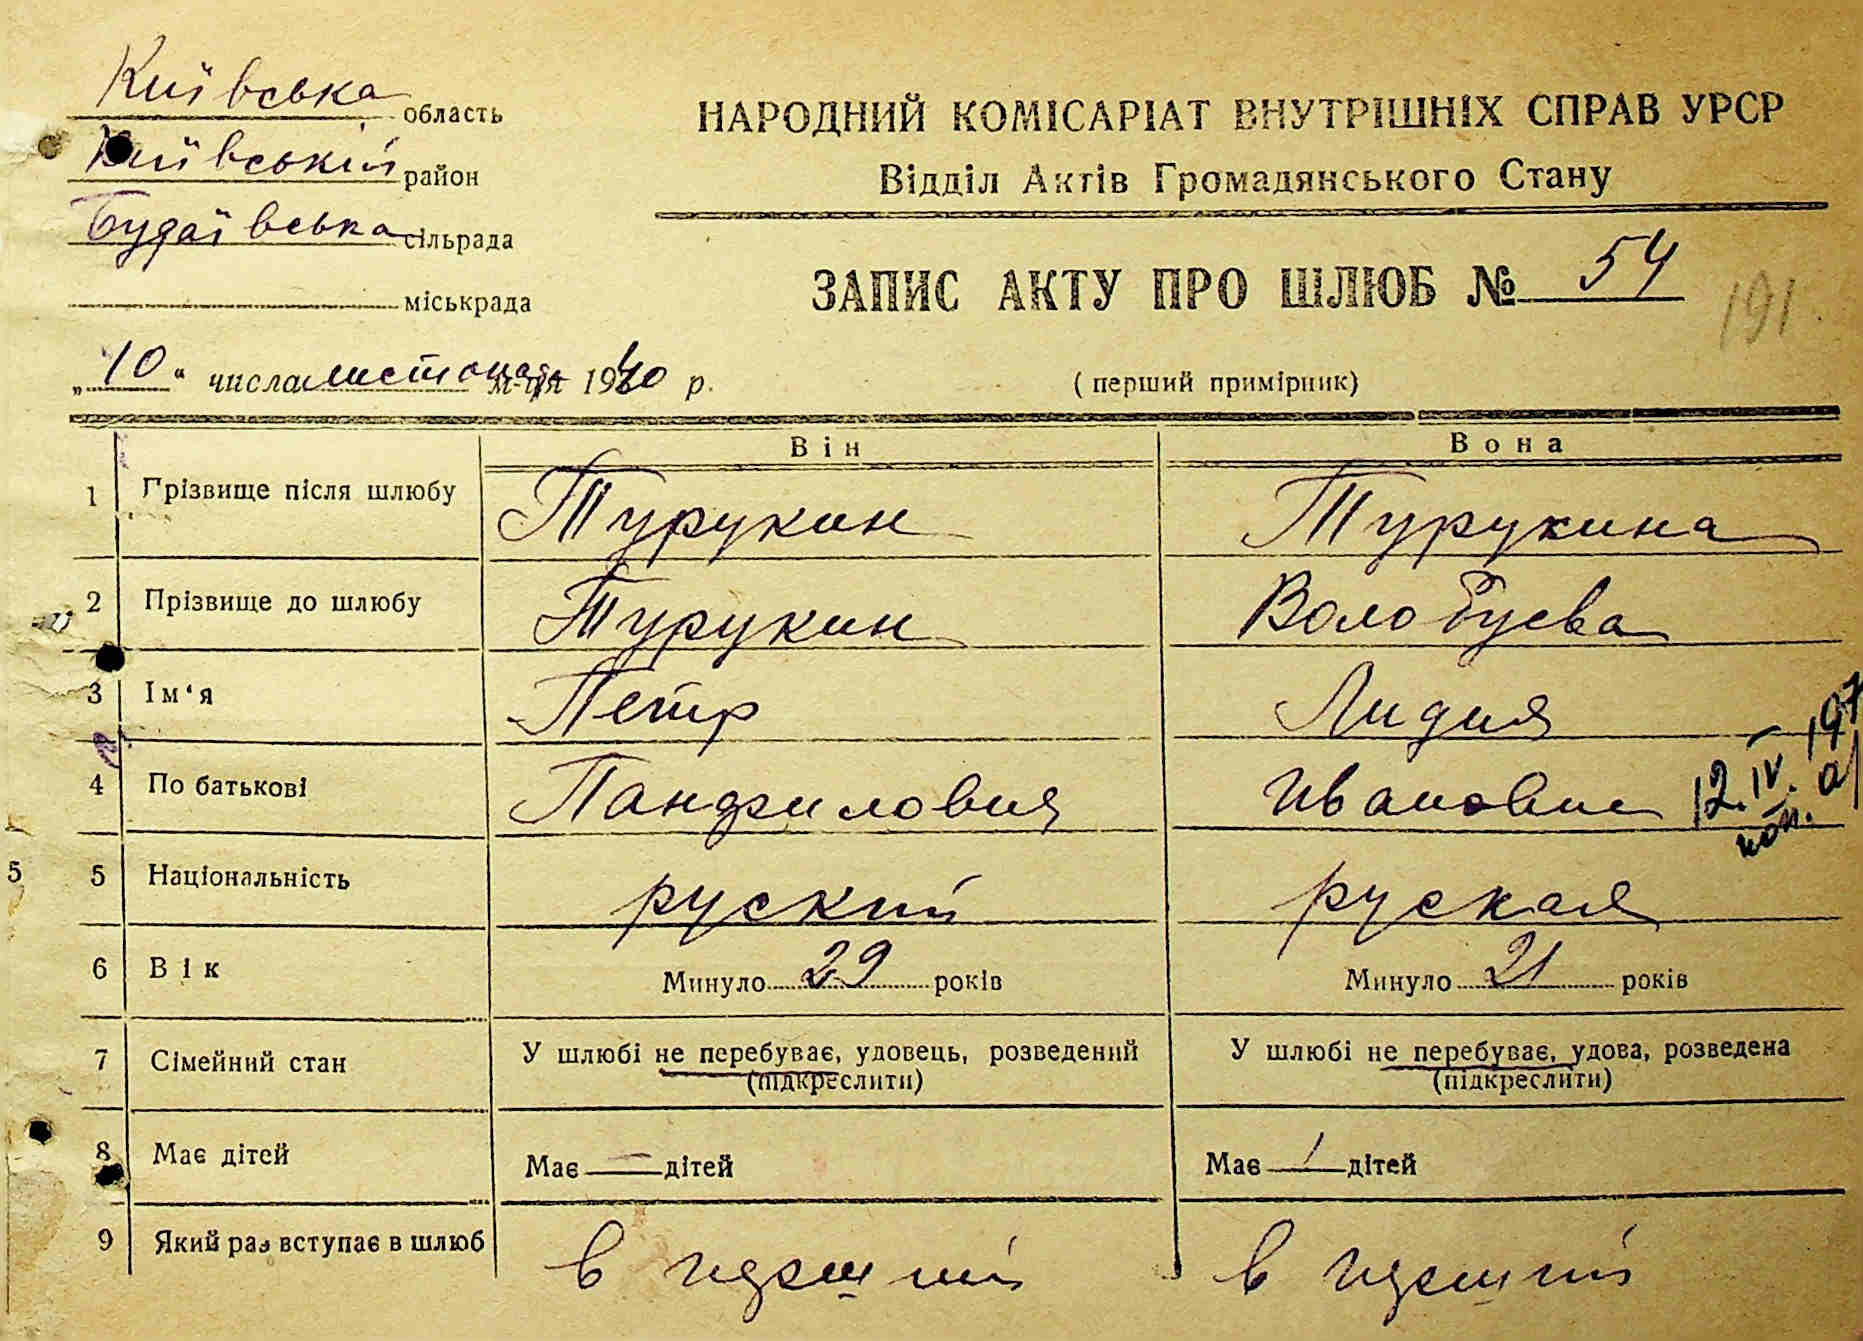 Київська область
Київський район
Будаївська сільрада
міськрада
НАРОДНИЙ КОМІСАРІАТ ВНУТРІШНІХ СПРАВ УРСР
Відділ Актів Громадянського Стану
ЗАПИС АКТУ ПРО ШЛЮБ № 54
191
„10“ числа листопада м-ця 1940 р.
(перший примірник)
Він Вона
1 Прізвище після шлюбу Турукин Турукина
2 Прізвище до шлюбу Турукин Волобуева
3 Ім‘я Петр Лидия
4 По батькові Панфилович Ивановна
12.IV.197
коп.
5 5 Національність руский руская
6 Вік Минуло 29 років Минуло 21 років
7 Сімейний стан У шлюбі не перебуває, удовець, розведений У шлюбі не перебуває, удова, розведена
(підкреслити) (підкреслити)
8 Має дітей Має — дітей Має 1 дітей
9 Який раз вступає в шлюб в перший в перший